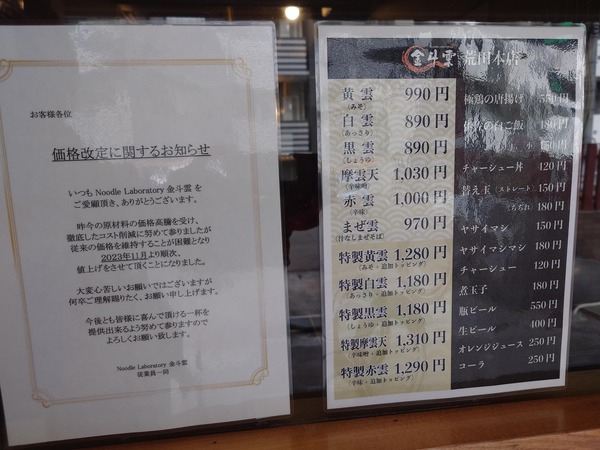 お客様各位
価格改定に関するお知らせ
いつも Noodle Laboratory 金斗雲 を
ご愛顧頂き、ありがとうございます。
昨今の原材料の価格高騰を受け、
徹底したコスト削減に努めて参りましたが
従来の価格を維持することが困難となり
2023年11月より順次、
値上げをさせて頂くことになりました。
大変心苦しいお願いではございますが
何卒ご理解賜りたく、お願い申し上げます。
今後とも皆様に喜んで頂ける一杯を
提供出来るよう努めて参りますので
よろしくお願い致します。
Noodle Laboratory 金斗雲
従業員一同
金斗雲 荒田本店
黄雲 990円
(みそ)
白雲 890円
(あっさり)
黒雲 890円
(しょうゆ)
摩雲天 1,030円
(辛味噌)
赤雲 1,000円
(辛味)
まぜ雲 970円
(汁なしまぜそば)
特製黄雲 1,280円
(みそ・追加トッピング)
特製白雲 1,180円
(あっさり・追加トッピング)
特製黒雲 1,180円
(しょうゆ・追加トッピング)
特製摩雲天 1,310円
(辛味噌・追加トッピング)
特製赤雲 1,290円
(辛味・追加トッピング)
極鶏の唐揚げ 550円
白ご飯 180円
チャーシュー丼
替え玉 (ストレート) 150円
(ちぢれ) 180円
ヤサイマシ 150円
ヤサイマシマシ 180円
チャーシュー 120円
煮玉子 180円
瓶ビール 550円
生ビール 400円
オレンジジュース 250円
コーラ 250円